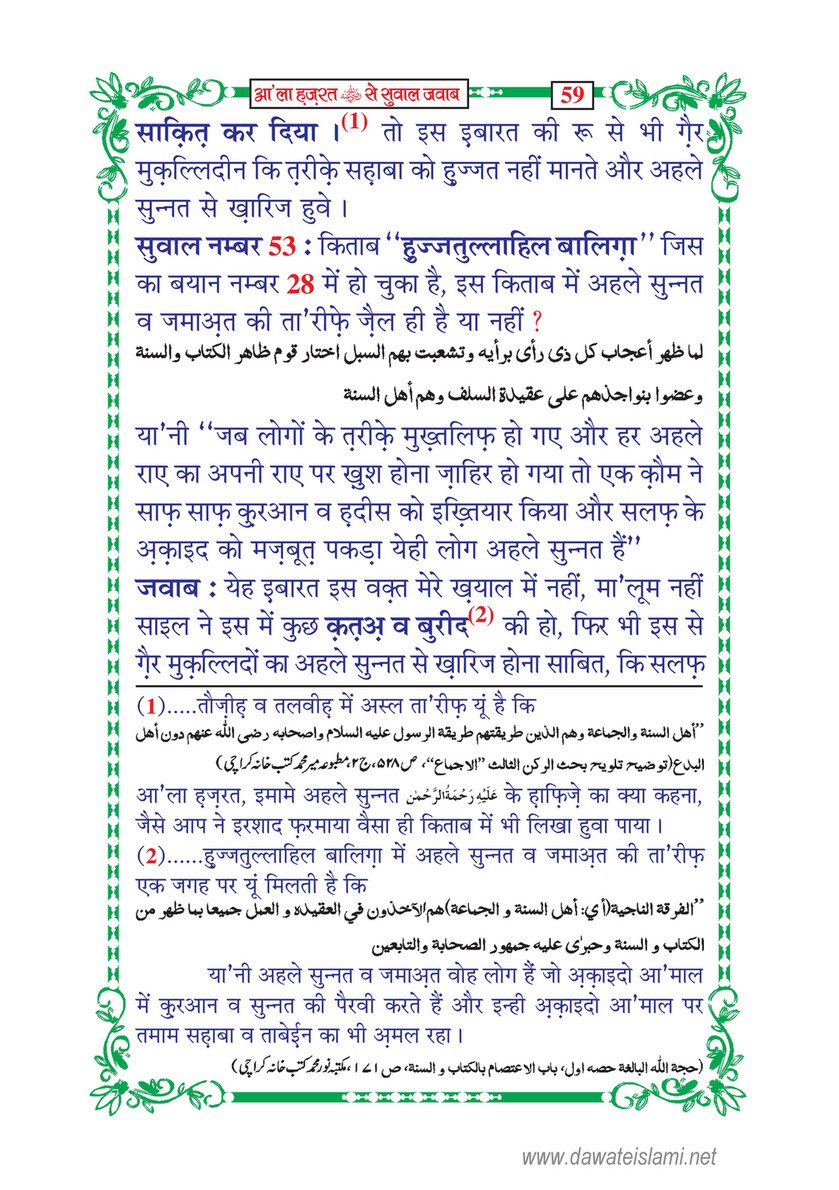 आ'ला हज़रत ﷫ से सुवाल जवाब
59
साक़ित़ कर दिया ।(1) तो इस इ़बारत की रू से भी ग़ैर
मुक़ल्लिदीन कि त़रीक़े सह़ाबा को ह़ुज्जत नहीं मानते और अहले
सुन्नत से ख़ारिज हुवे ।
सुवाल नम्बर 53 : किताब ‘‘ह़ुज्जतुल्लाहिल बालिग़ा’’ जिस
का बयान नम्बर 28 में हो चुका है, इस किताब में अहले सुन्नत
व जमाअ़त की ता'रीफ़े ज़ैल ही है या नहीं ?
لما ظهر أعجاب كل ذى رأى برأيه وتشعبت بهم السبل اختار قوم ظاهر الكتاب والسنة
وعضوا بنواجذهم على عقيدة السلف وهم أهل السنة
या'नी ‘‘जब लोगों के त़रीक़े मुख़्तलिफ़ हो गए और हर अहले
राए का अपनी राए पर ख़ुश होना ज़ाहिर हो गया तो एक क़ौम ने
साफ़ साफ़ क़ुरआन व ह़दीस को इख़्तियार किया और सलफ़ के
अ़क़ाइद को मज़बूत़ पकड़ा येही लोग अहले सुन्नत हैं’’
जवाब : येह इ़बारत इस वक़्त मेरे ख़याल में नहीं, मा'लूम नहीं
साइल ने इस में कुछ क़त़अ़ व बुरीद(2) की हो, फिर भी इस से
ग़ैर मुक़ल्लिदों का अहले सुन्नत से ख़ारिज होना साबित, कि सलफ़
(1).....तौज़ीह़ व तलवीह़ में अस्ल ता'रीफ़ यूं है कि
’’أهل السنة والجماعة وهم الذين طريقتهم طريقة الرسول عليه السلام واصحابه رضى الله عنهم دون أهل
البدع(توضيح تلويح بحث الركن الثالث ’’الاجماع‘‘، ص ۵۲۸، ج۲، مطبوعہ میر محمد کتب خانہ کراچی)
आ'ला ह़ज़रत, इमामे अहले सुन्नत عَلَيْهِ رَحْمَةُ الرَّحْمٰن के ह़ाफ़िज़े का क्या कहना,
जैसे आप ने इरशाद फ़रमाया वैसा ही किताब में भी लिखा हुवा पाया ।
(2)......ह़ुज्जतुल्लाहिल बालिग़ा में अहले सुन्नत व जमाअ़त की ता'रीफ़
एक जगह पर यूं मिलती है कि
’’الفرقة الناجية(أي: أهل السنة و الجماعة)هم الآخذون في العقيده و العمل جميعا بما ظهر من
الكتاب و السنة وجرىٰ عليه جمهور الصحابة والتابعين
या'नी अहले सुन्नत व जमाअ़त वोह लोग हैं जो अ़क़ाइदो आ'माल
में क़ुरआन व सुन्नत की पैरवी करते हैं और इन्ही अ़क़ाइदो आ'माल पर
तमाम सह़ाबा व ताबेई़न का भी अ़मल रहा ।
(حجة الله البالغة حصه اول، باب الاعتصام بالكتاب و السنة، ص ١٧١، مکتبہ نور محمد کتب خانہ کراچی)
www.dawateislami.net